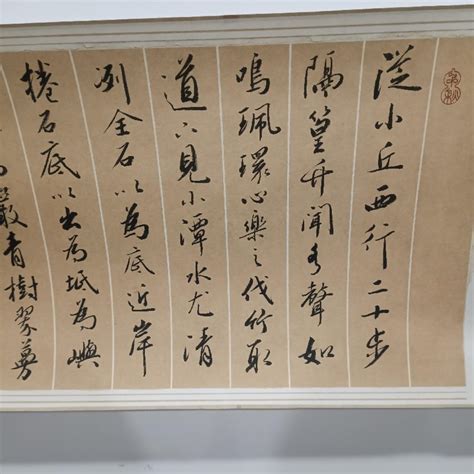 從小丘西行二十步
隔篁竹聞水聲如
鳴珮環心樂之伐竹取
道下見小潭水尤清
冽全石以為底近岸
捲石底以出為坻為嶼
巖青樹翠蔓